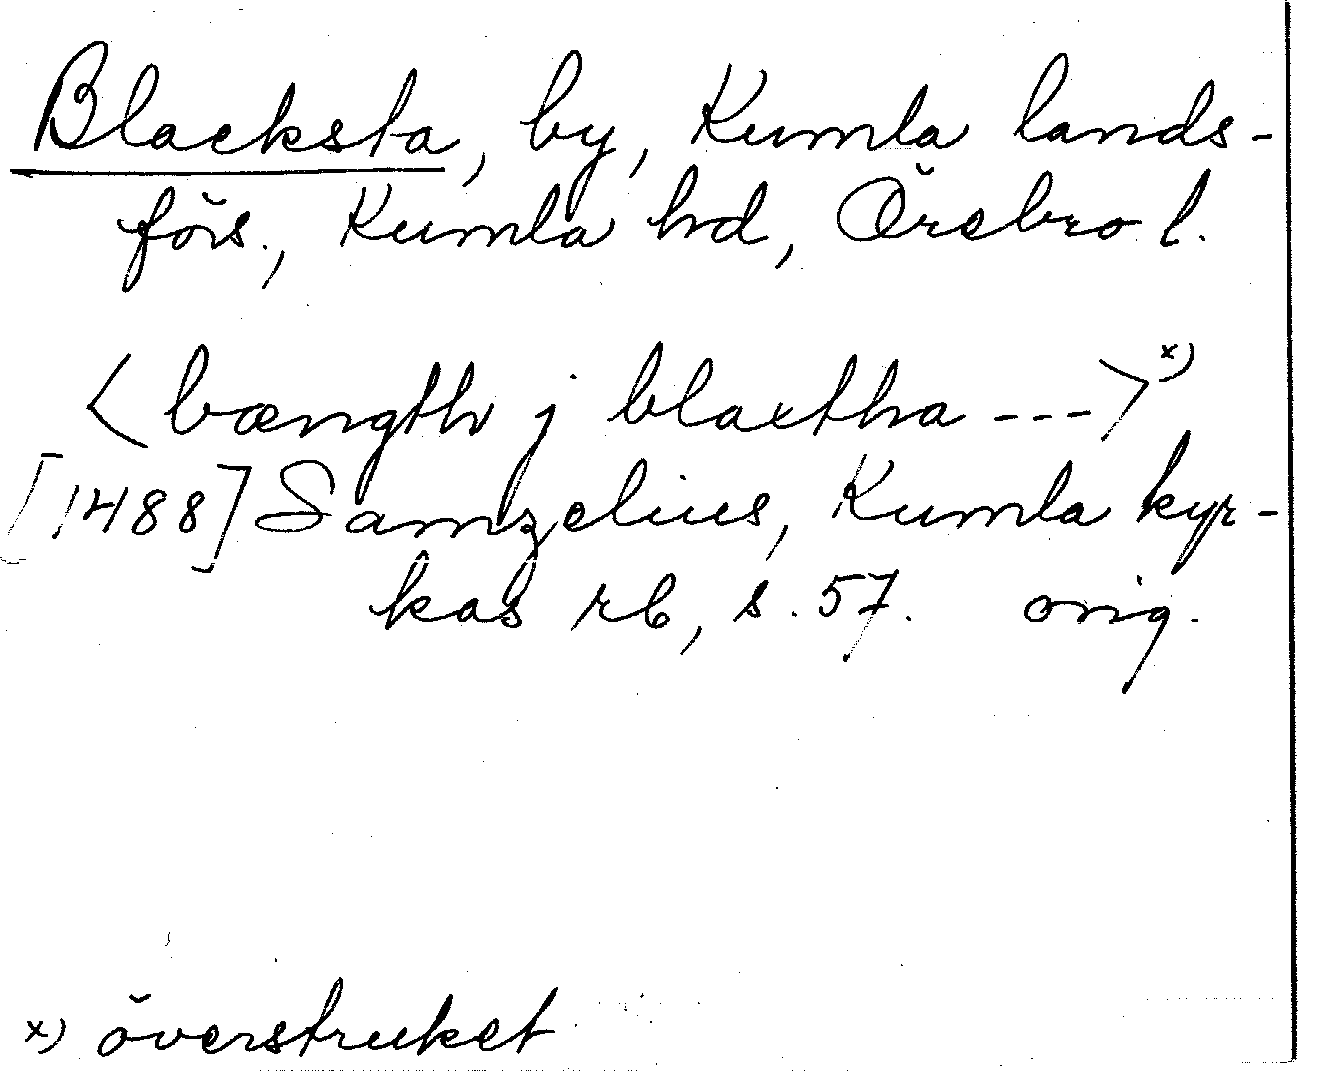 Blacksta, by, Kumla lands-
förs., Kumla hd, Örebro l.
< bængth j blaxtha --- > x)
[1488] Samzelius, Kumla kyr-
kas rb, s. 57. orig.
x) överstruket